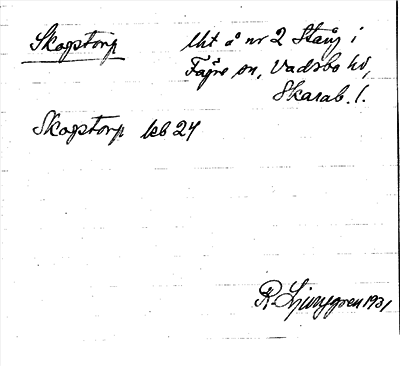 Skogstorp
Uht å nr 2 Stång i
Fägre sn, Vadsbo hd,
Skarab. l.
Skogstorp leb 24
R. Ljunggren 1931